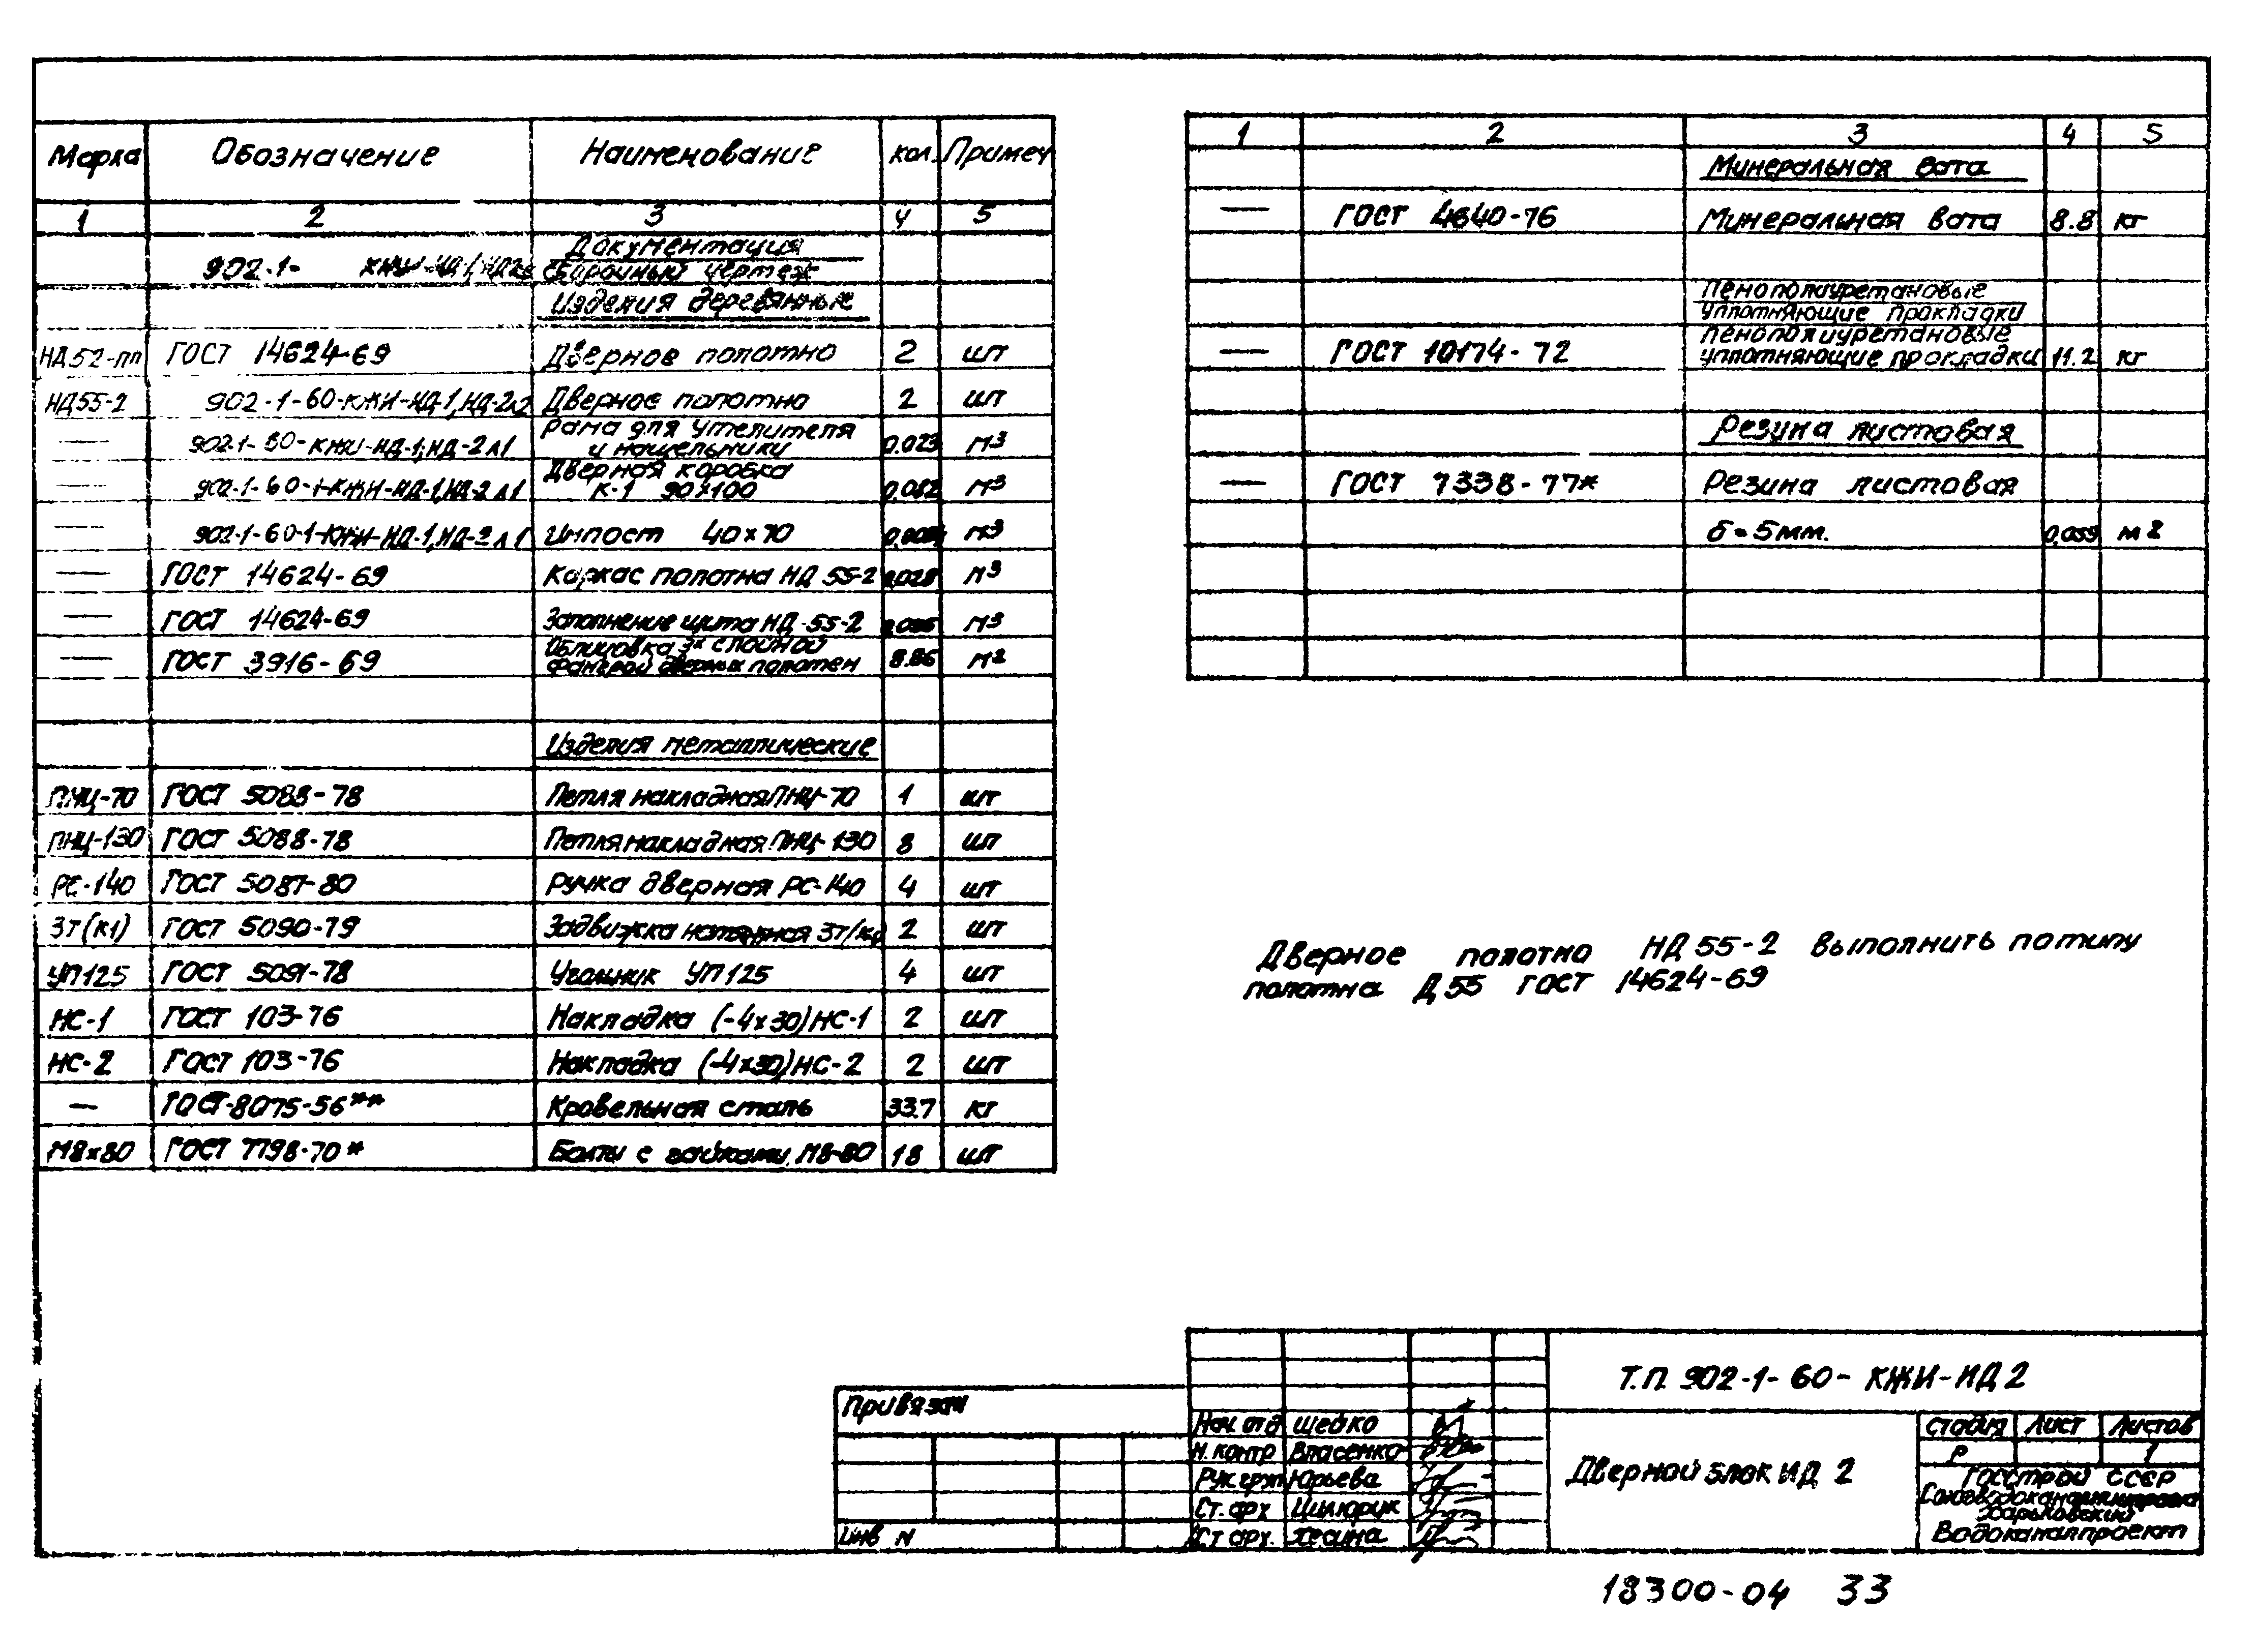 Марка Обозначение Наименование кол. Примеч
1 2 3 4 5
Документация
902-1- сборочный чертеж
Изделия деревянные
НД52-пл ГОСТ 14624-69 Дверное полотно 2 шт
НД55-2 902-1-60-КЖИ-НД-1,НД-2л2 Дверное полотно 2 шт
— 902-1-60-КЖИ-НД-1,НД-2л1 Рама для утеплителя
и нащельники 0.023 м3
— 902-1-60-1-КЖИ-НД-1,НД-2л1 Дверная коробка
К-1 90х100 0,082 м3
— 902-1-60-1-КЖИ-НД-1,НД-2л1 Импост 40х70 м3
— ГОСТ 14624-69 Каркас полотна НД 55-2 0,028 м3
— ГОСТ 14624-69 Заполнение щита НД-55-2 м3
— ГОСТ 3916-69 Облицовка 3х слойной
фанерой дверных полотен 8.86 м2
Изделия металлические
ПНЦ-70 ГОСТ 5088-78 Петля накладная ПНЦ-70 1 шт
ПНЦ-130 ГОСТ 5088-78 Петля накладная ПНЦ-130 8 шт
РС-140 ГОСТ 5087-80 Ручка дверная РС-140 4 шт
ЗТ(К1) ГОСТ 5090-79 Задвижка ЗТ/К1) 2 шт
УП125 ГОСТ 5091-78 Угольник УП125 4 шт
НС-1 ГОСТ 103-76 Накладка (-4х30)НС-1 2 шт
НС-2 ГОСТ 103-76 Накладка (-4х30)НС-2 2 шт
— ГОСТ-8075-56** Кровельная сталь 33.7 кг
М8х80 ГОСТ 7798-70* Болты с гайками М8-80 18 шт
1 2 3 4 5
Минеральная вата
— ГОСТ 4640-76 Минеральная вата 8.8 кг
Пенополиуретановые
уплотняющие прокладки
— ГОСТ 10174-72 Пенополиуретановые
уплотняющие прокладки 11.2 кг
Резина листовая
— ГОСТ 7338-77* Резина листовая
б=5мм. 0,059 м2
Дверное полотно НД 55-2 выполнить по типу
полотна Д 55 ГОСТ 14624-69
Привязан
Инв N
Нач. отд Шейко
Н. контр Власенко
Рук груп Юрьева
Ст. арх Цилюрик
Ст арх. Хесина
Т.П. 902-1-60-КЖИ-НД2
Дверной блок НД 2
Стадия Лист Листов
Р 1
Госстрой СССР
Союзводоканалниипроект
Харьковский
Водоканалпроект
18300-04 33